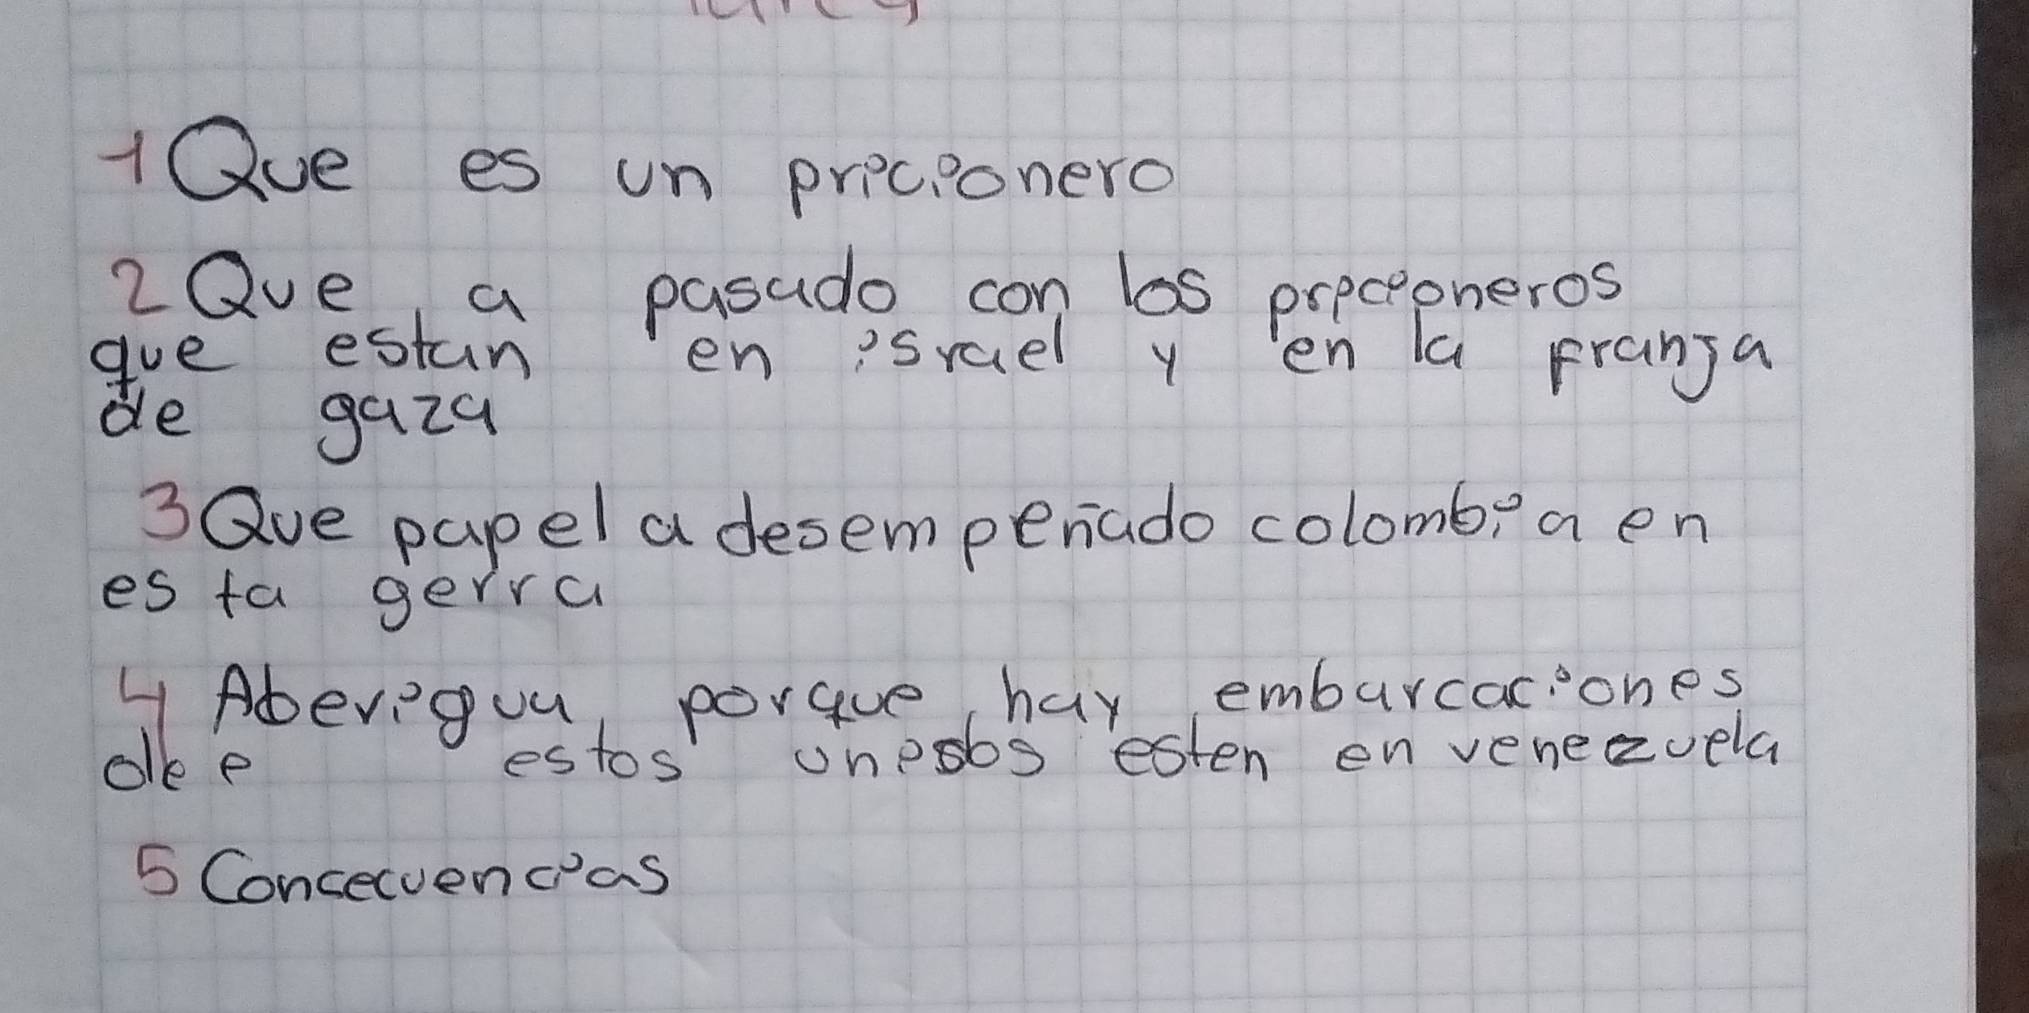 1 Que es un pricionero
2 Que a pasado con los pricioneros
que estan en israel y en la franja
de gaza
3 Que papel a desempeñado colombia en
es ta gerra
4 Aberigua porque hay embarcaciones
de e estos esten en venezuela
5 Concecuencias